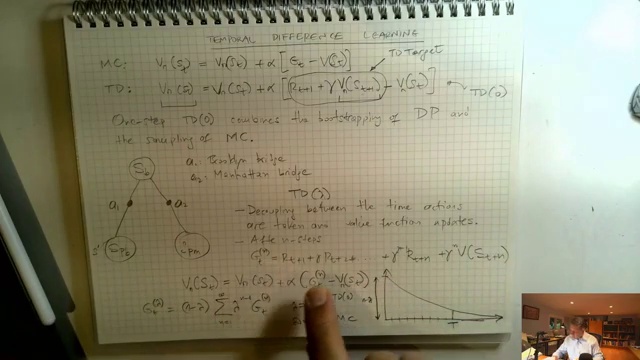 TEMPORAL DIFFERENCE LEARNING
MC: Vπ(St) = Vπ(St) + α [Gt − V(St)]
TD Target
TD: Vπ(St) = Vπ(St) + α [Rt+1 + γVπ(St+1) − Vπ(St)]
TD(0)
One-step TD(0) combines the bootstrapping of DP and
the sampling of MC.
a1: Brooklyn bridge
a2: Manhattan bridge
St
a1
a2
TD(λ)
- Decoupling between the time actions
are taken and value function updates.
- After n-steps
Gt(n) = Rt+1 + γRt+2 + + γn-1 Rt+n + γn V(St+n)
Vπ(St) = Vπ(St) + α (Gt(λ) − Vπ(St))
Gt(λ) = (1-λ) Σ λn-1 Gt(n)
TD(0)
MC
1-λ
T